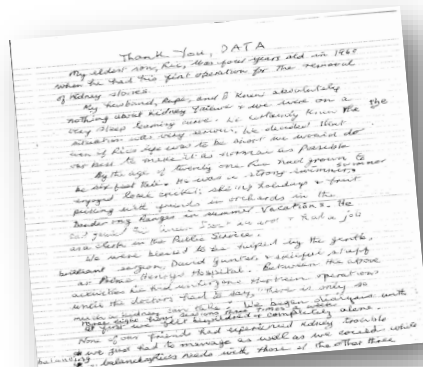 Thank You, DATA
My eldest son, Kim, was four years old in 1963
when he had his first operation for the removal
of kidney stones.
My husband, and I knew absolutely
nothing about kidney failure & we were on a
very steep learning curve. We certainly knew the
situation was very serious, we decided that
even if Kim's life was to be short we would do
our best to make it as normal as possible
By the age of twenty one Kim had grown to
be six feet tall. He was a strong swimmer
enjoyed cricket, skiing holidays & fruit
picking with friends in orchards in the
Dandenong Ranges in summer vacations. He
had & had a job
as a clerk in the Public Service.
We were blessed to be helped by the gentle,
brilliant surgeon, David & skilful staff
at Prince Henry's Hospital. Between the above
activities he had undergone thirteen operations
until the doctors had to say, there is only so
much a kidney can take. We began dialysis with
three eight hour sessions three times a week
At first we felt bewildered & completely alone.
None of our friends had experienced kidney trouble
& we just had to manage as well as we could while
balancing needs with those of the other three